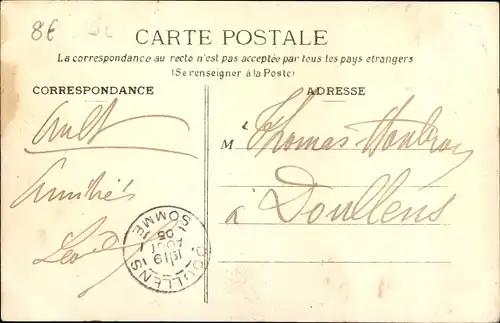 8€
CARTE POSTALE
La correspondance au recto n'est pas acceptée par tous les pays etrangers
(Se renseigner à la Poste)
CORRESPONDANCE
ADRESSE
Ault
Amitiés
Léo
M
Thomas
à Doullens
DOULLENS
SOMME
19
AOUT
05